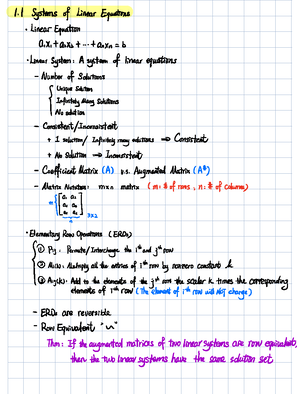 1.1 Systems of Linear Equations
• Linear Equation
a₁x₁ + a₂x₂ + ⋯ + aₙxₙ = b
• Linear System: A system of linear equations
– Number of Solutions
Unique Solution
Infinitely Many Solutions
No solution
– Consistent/Inconsistent
+ 1 solution/ Infinitely many solutions ⇒ Consistent
+ No Solution ⇒ Inconsistent
– Coefficient Matrix (A) v.s. Augmented Matrix (A*)
– Matrix Notation: m×n matrix (m: # of rows, n: # of columns)
3×2
• Elementary Row Operations (EROs)
① Pij: Permute/Interchange the iᵗʰ and jᵗʰ row
② Mi(k): Multiply all the entries of iᵗʰ row by nonzero constant k
③ Aij(k): Add to the elements of the jᵗʰ row the scalar k times the corresponding
elements of iᵗʰ row (The element of iᵗʰ row will NOT change)
– EROs are reversible
– Row Equivalent "~"
Thm: If the augmented matrices of two linear systems are row equivalent,
then the two linear systems have the same solution set